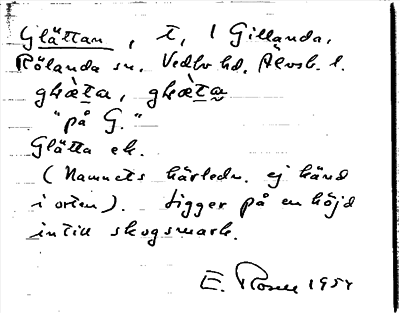 Glättan, t, 1 Gillanda,
Rölanda sn. Vedbo hd, Älvsb. l.
"på G."
Glätta ek.
(Namnets härledn. ej känd
i orten). Ligger på en höjd
intill skogsmark.
E. Rosell 1954